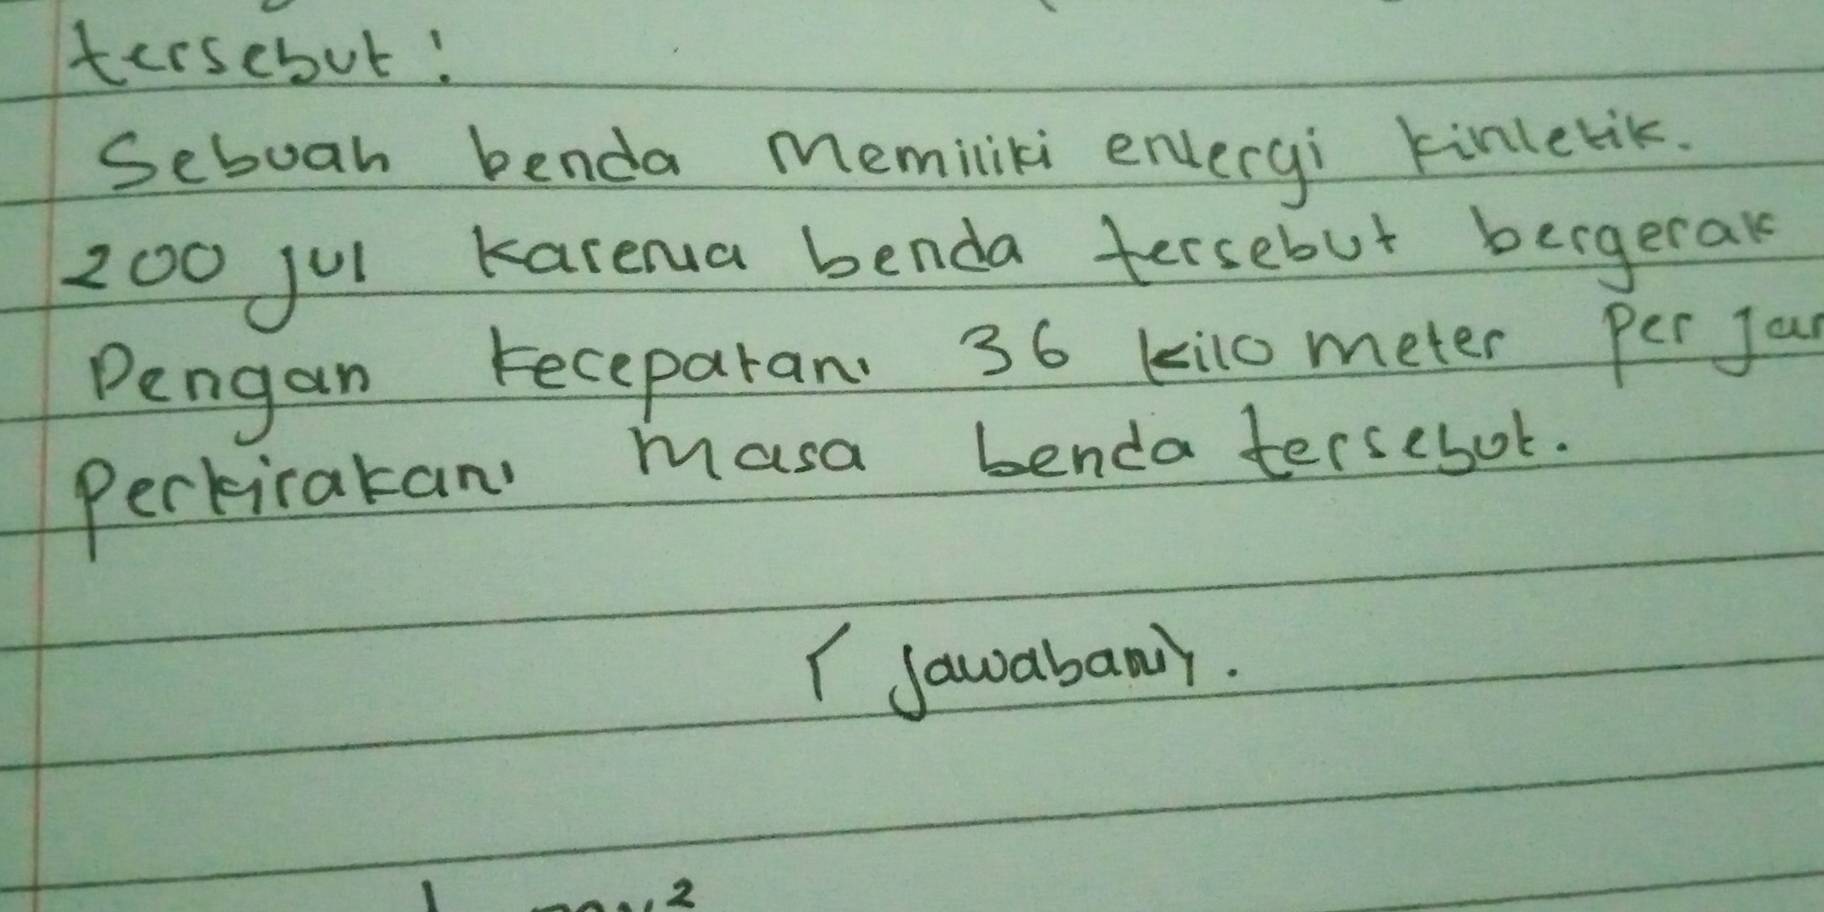 tersebut!
Sebuah benda memiliki energi kinletik.
200 jul karena benda tersebut bergerak
Dengan kecepatan 36 kilo meter Per Jam
Perkirakan masa benda tersebut.
( Jawaban).